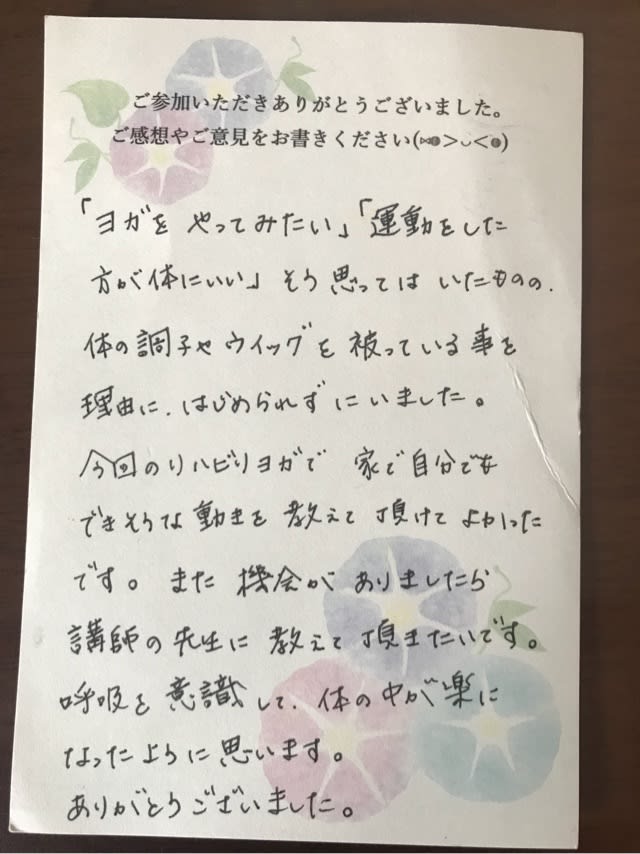 ご参加いただきありがとうございました。
ご感想やご意見をお書きください(⑅●>◡<●)
「ヨガを やってみたい」「運動をした
方が体にいい」そう思っては いたものの、
体の調子や ウイッグを 被っている 事を
理由に、はじめられず にいました。
今回のリハビリヨガで 家で自分でも
できそうな 動きを 教えて 頂けて よかった
です。また 機会が ありましたら
講師の 先生に 教えて 頂きたいです。
呼吸を 意識して、体の 中が 楽に
なったように 思います。
ありがとうございました。